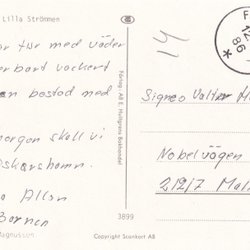 Lilla Strömmen
or tur med väder
erbart vackert
en bostad med
morgon skall vi
skarshamn.
Allan
Barnen
Magnusson
Förlag: AB E. Hultgrens Bokhandel
3899
Copyright Scankort AB
14
F
12
86
Signeo Valter
Nobelvägen
21217 Mal